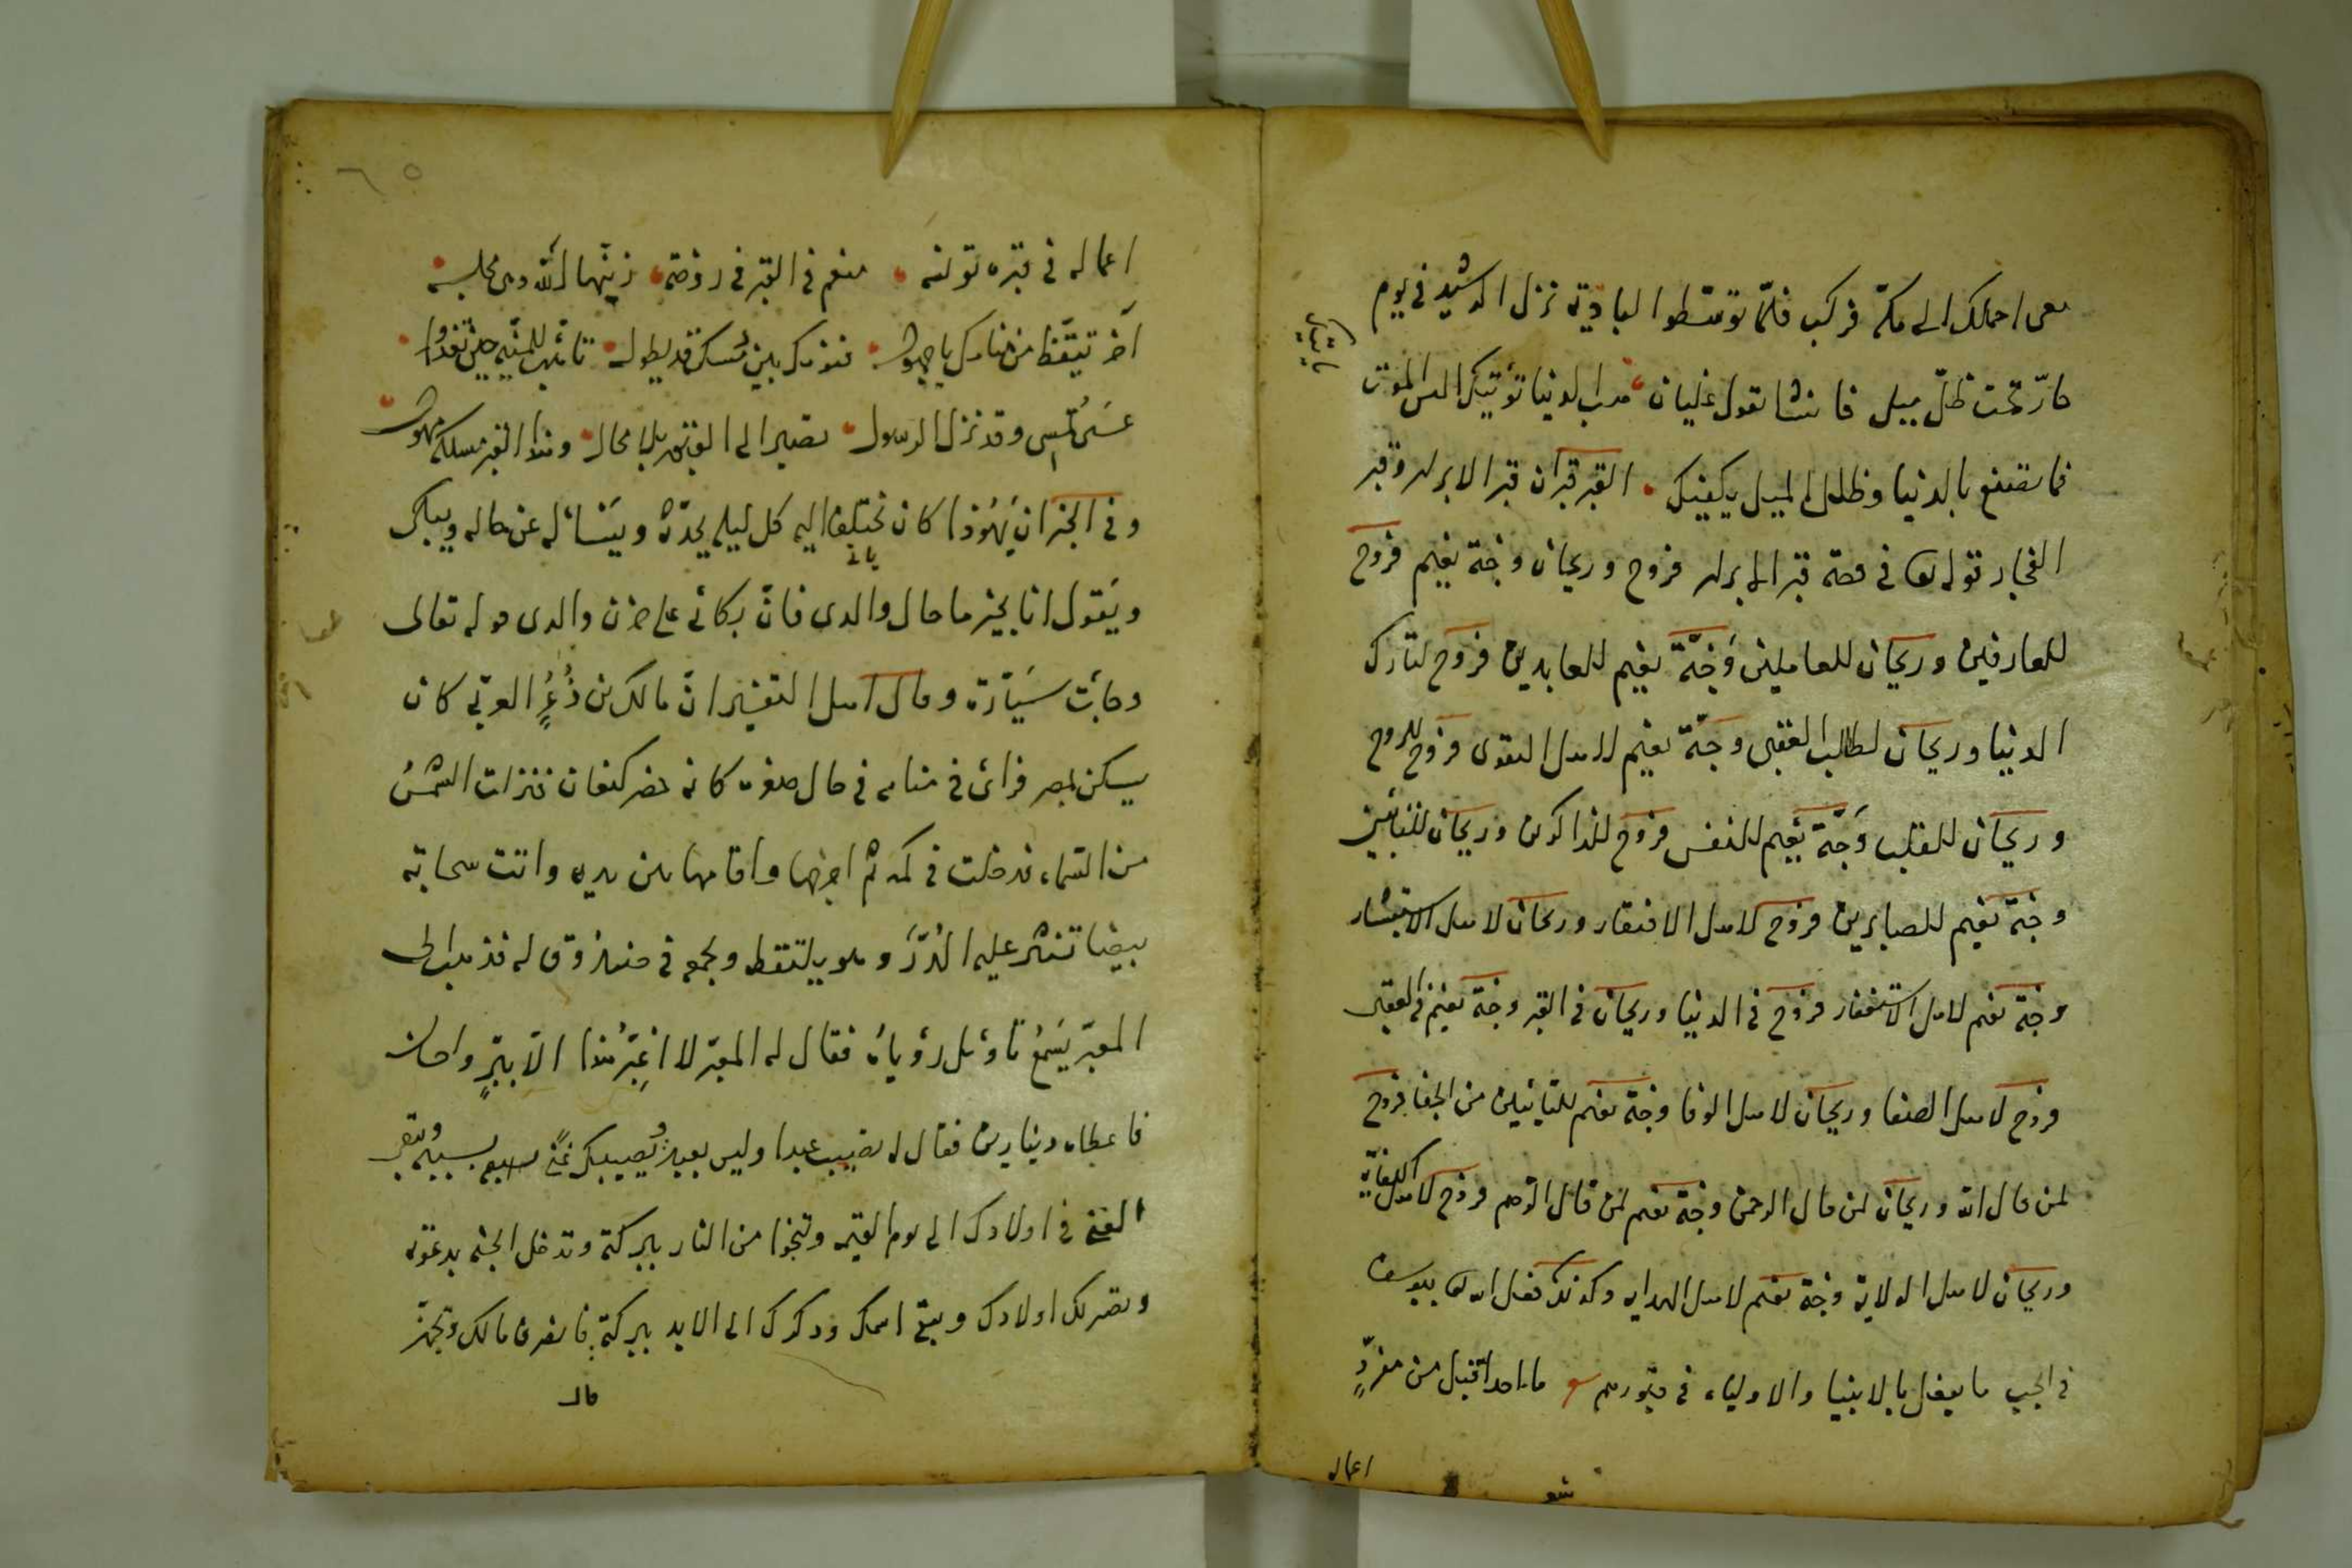 معى احمالك الى مكة فركب فلمّا توسّطوا البادية نزل الرشيد فى يوم
حارّ تحت ظلّ ميل فانشا يقول عليان هب الدنيا تؤتيك اليس الموت
ياتيك
فما تصنع بالدنيا وظل الميل يكفيك القبر قبران قبر الابرار وقبر
الفجار قوله تعا فى قصة قبر الابرار فروح وريحان وجنة نعيم فروح
للعارفين وريحان للعاملين وَجَنّة نعيم للعابدين فروح لتارك
الدنيا وريحان لطالب العقبى وجنّة نعيم لاهل التقوى فروح للروح
وريحان للقلب وَجَنّة نَعيم للنفس فروح للذاكرين وريحان للتائبين
وجنة نعيم للصابرين فروح لاهل الافتقار وريحان لاهل الاستبشار
وجنة نعيم لاهل الاستغفار فروح فى الدنيا وريحان فى القبر وجنة نعيم فى العقبى
فروح لاهل الصفا وريحان لاهل الوفا وجنة نعيم للتائبين من الجفا فروح
لمن قال الله وريحان لمن قال الرحمن وجنة نعيم لمن قال الرحيم فروح لاهل الكفاية
وريحان لاهل الولاية وجنة نعيم لاهل الهدايه وكذلك فعل الله تعا بيوسف
فى الجب ما يفعل بالانبيا والاولياء فى قبورهم ما احد اقبل من مفردٍ
اعماله
اعماله فى قبره تونسه منعم فى القبر فى روضة زيّنها الله فهى مجلسه
آخر تيقّظ من منامك يا جهول فنومك بين رمسك قد يطول تأهّب للمنيّه حين تغدوا
عسَى تُمسى وقد نزل الرسول تصير الى القبور بلا محال وهذا القبر مسلكه مهول
وفى الخبر ان يَهُوذا كان يختلف اليه كل ليله يحدّثه ويَسَأله عن حاله ويبكى
ويَقول انا بخير ما حال والدى فانّ بكائى على حزن والدى قوله تعالى
وجائت سَيّارة وقال اهل التفسير انّ مالك بن ذُعُرٍ العربى كان
يسكن بمصر فرأى فى منامه فى حال صغره كانه حضر كنعان فنزلت الشمسُ
من السماء فدخلت فى كمه ثم اخرجها واقامها بين يديه واتت سحابة
بيضا تنثر عليه الدُرَرَ وهو يلتقط ويجمع فى صندوق له فذهب الى
المعبّر يَسمعُ تأويل رؤياهُ فقال له المعبّر لا اعبِّر هذا الّا ببرٍّ واحسان
فاعطاه دينارين فقال له تصيب عبدا وليس بعبدٍ ويُصيبك غنىً بسببه ويبقى
الغنى فى اولادك الى يوم القيمه وتنجوا من النار ببركته وتدخل الجنه بدعوته
وتصير لك اولادك ويبقى اسمك وذكرك الى الابد ببركته فانصرف مالك وتجهّز
قال